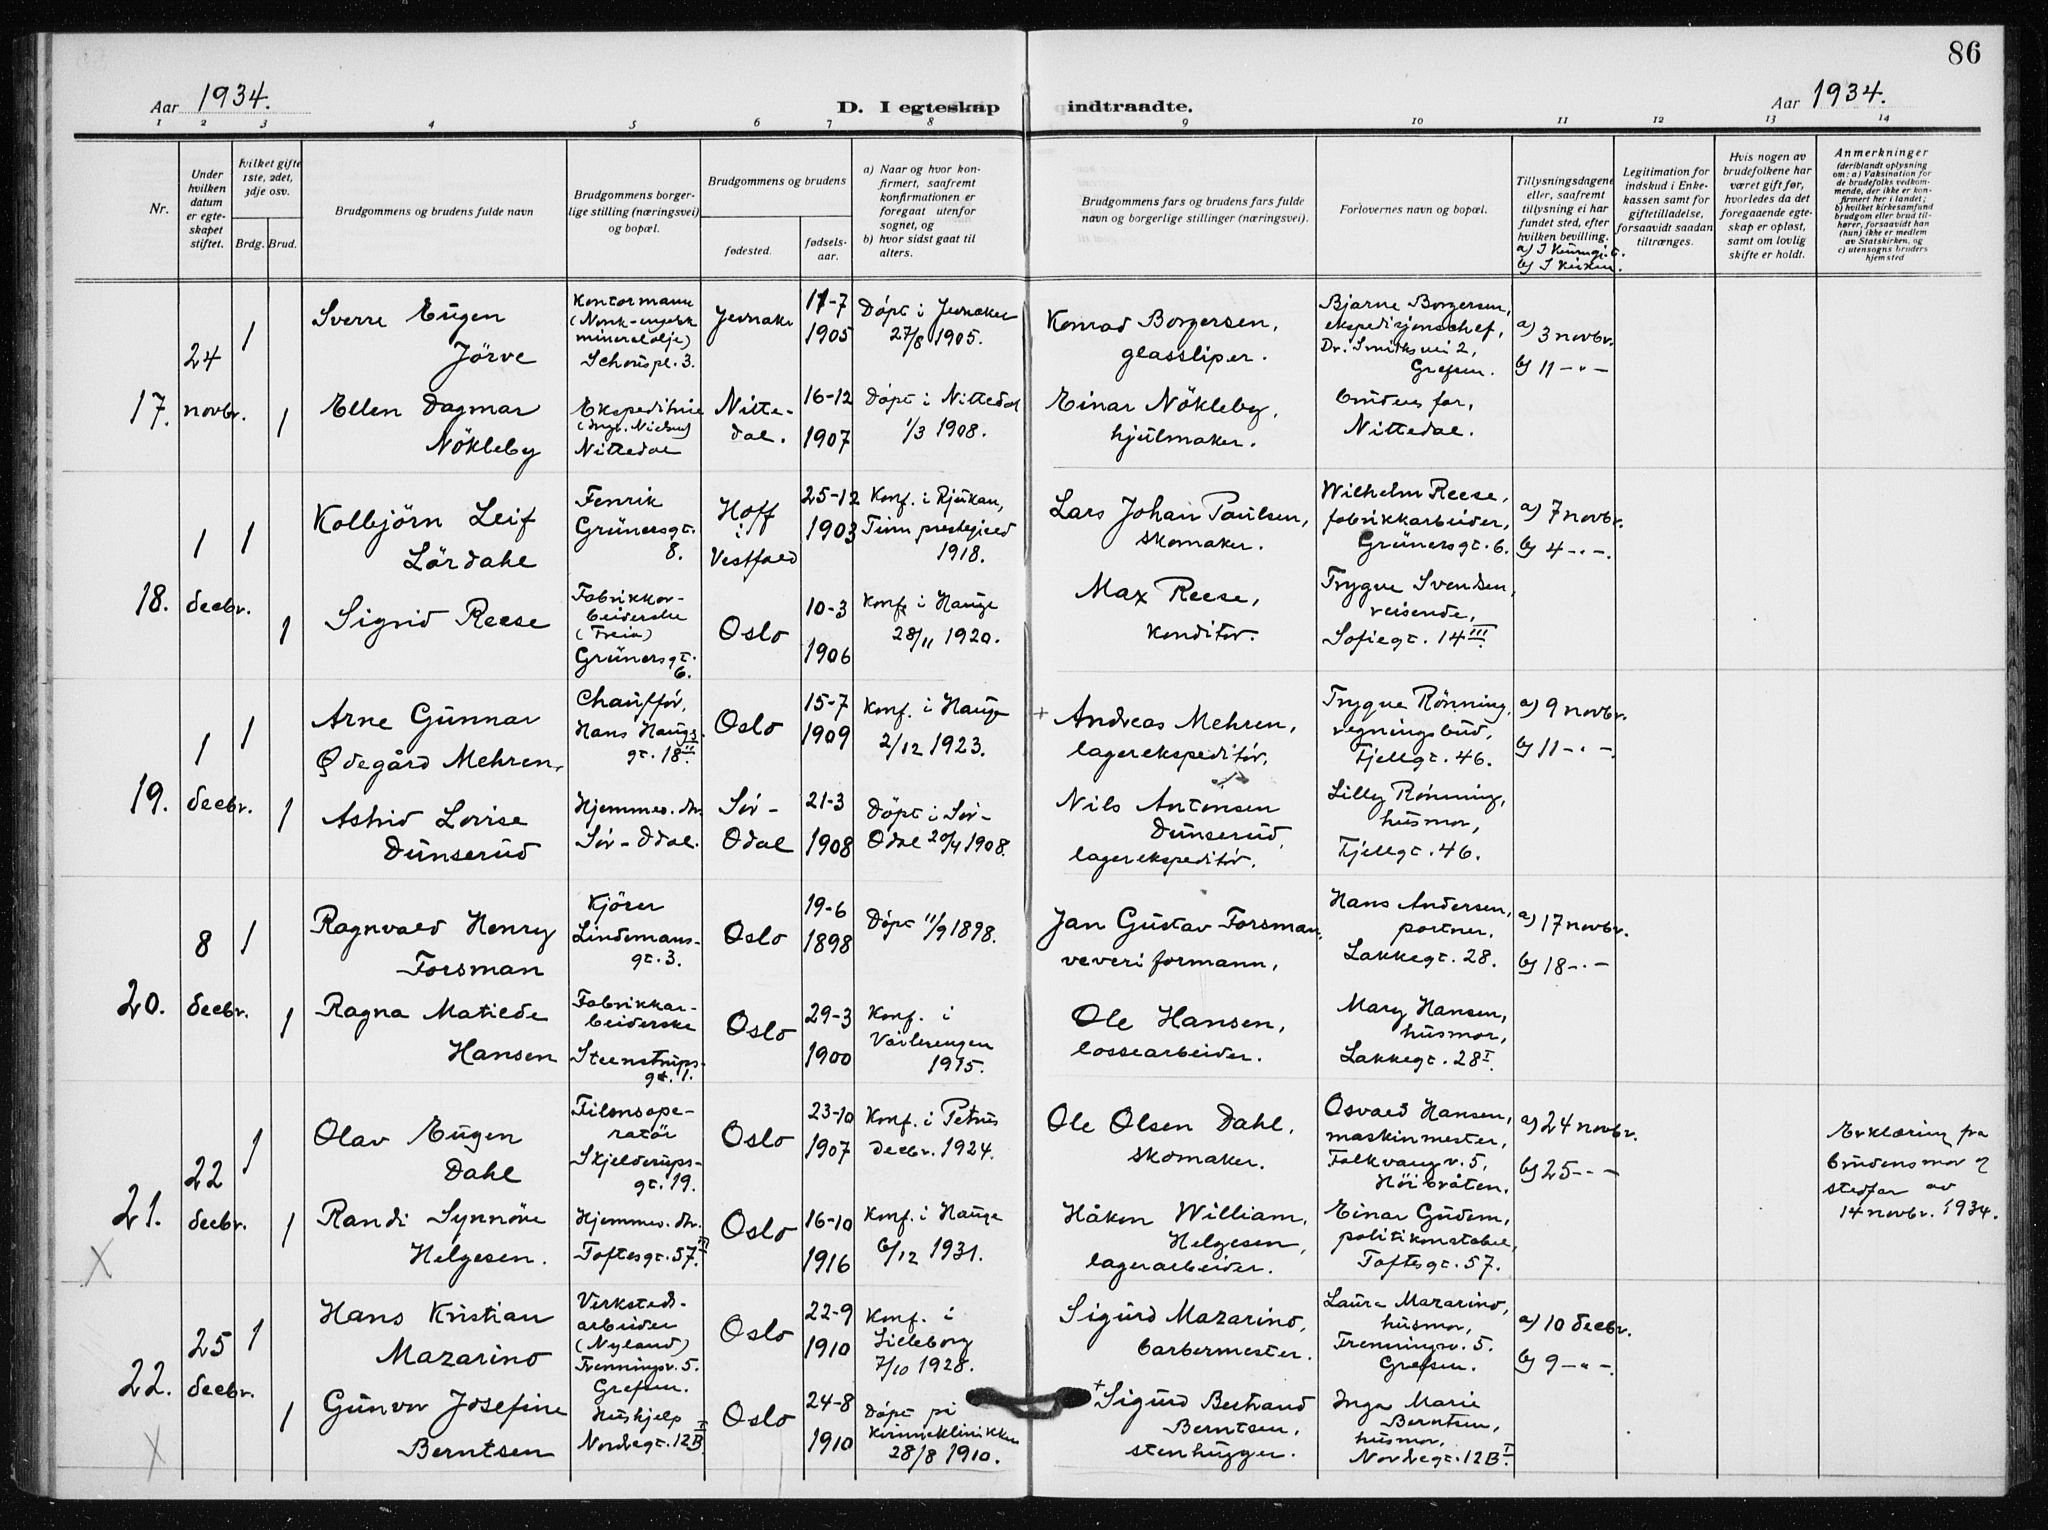 86
Aar 1934.
D. I egteskap indtraadte.
Aar 1934.
1 2 3 4 5 6 7 8 9 10 11 12 13 14
Nr.
Under
hvilken
datum
er egte-
skapet
stiftet.
hvilket gifte
1ste, 2det,
3dje osv.
Brdg. Brud.
Brudgommens og brudens fulde navn
Brudgommens borger-
lige stilling (næringsvei)
og bopæl.
Brudgommens og brudens
fødested.
fødsels-
aar.
a) Naar og hvor kon-
firmert, saafremt
konfirmationen er
foregaat utenfor
sognet, og
b) hvor sidst gaat til
alters.
Brudgommens fars og brudens fars fulde
navn og borgerlige stillinger (næringsvei).
Forlovernes navn og bopæl.
Tillysningsdagene
eller, saafremt
tillysning ei har
fundet sted, efter
hvilken bevilling.
b) I kirken.
Legitimation for
indskud i Enke-
kassen samt for
giftetilladelse,
forsaavidt saadan
tiltrænges.
Hvis nogen av
brudefolkene har
været gift før,
hvorledes da det
foregaaende egte-
skap er opløst,
samt om lovlig
skifte er holdt.
Anmerkninger
(deriblandt oplysning
om: a) Vaksination for
de brudefolks vedkom-
mende, der ikke er kon-
firmert her i landet;
b) hvilket kirkesamfund
brudgom eller brud til-
hører, forsaavidt han
(hun) ikke er medlem
av Statskirken, og
c) utensogns bruders
hjemsted
17.
24
novbr.
1
Sverre Eugen
Jörve
Kontormann
(Norsk-engelsk
mineralolje)
Schouspl. 3.
Jevnaker
17-7
1905
Döpt i Jevnaker
27/8 1905.
Konrad Borgersen,
glassliper.
Bjarne Borgersen,
ekspedisjonschef,
Dr. Smithsvei 2,
Grefsen.
a) 3 novbr.
b) 11 - " -
1
Ellen Dagmar
Nökleby
Ekspeditrise
Nittedal
Nitte-
dal.
16-12
1907
Döpt i Nittedal
1/3 1908.
Einar Nökleby,
hjulmaker.
Brudens far,
Nittedal.
18.
1
decbr.
1
Kolbjörn Leif
Lördahl
Fenrik
Grünersgt.
8.
Hoff
i
Vestfold
25-12
1903
Konf. i Rjukan,
Tinn prestegjeld
1918.
Lars Johan Paulsen,
skomaker.
Wilhelm Reese,
fabrikkarbeider,
Grünersgt. 6.
a) 7 novbr.
b) 4 - " -
1
Sigrid Reese
Fabrikkar-
beiderske
(Freia)
Grünersgt.
6.
Oslo
10-3
1906
Konf. i Hauge
28/11 1920.
Max Reese,
konditor.
Trygve Svendsen,
reisende,
Sofiegt. 14 III
19.
1
decbr.
1
Arne Gunnar
Ødegård Mehren.
Chaufför,
Hans Haugs
gt. 18 II
Oslo
15-7
1909
Konf. i Hauge
2/12 1923.
+ Andreas Mehren,
lagerekspeditör.
Trygve Rönning,
regningsbud,
Fjellgt. 46.
a) 9 novbr.
b) 11 - " -
1
Astrid Lovise
Dunserud
Hjemmev. dtr.
Sör-Odal.
Sör-
Odal
21-3
1908
Döpt i Sör-
Odal 20/4 1908.
Nils Antonsen
Dunserud,
lagerekspeditör.
Lilly Rönning,
husmor,
Fjellgt. 46.
20.
8
decbr.
1
Ragnvald Henry
Forsman
Kjörer
Lindemans-
gt. 3.
Oslo
19-6
1898
Döpt 11/9 1898.
Jan Gustav Forsman,
veveriformann,
Hans Andersen,
portner.
Lakkegt. 28.
a) 17 novbr.
b) 18 - " -
1
Ragna Matilde
Hansen
Fabrikkar-
beiderske
Steenstrups-
gt. 1.
Oslo
29-3
1900
Konf. i
Vålerengen
1915.
Ole Hansen,
lossearbeider.
Mary Hansen,
husmor,
Lakkegt. 28 I.
21.
X
22
decbr.
1
Olav Eugen
Dahl
Filmsope-
ratör
Skjelderups-
gt. 19.
Oslo
23-10
1907
Konf. i Petrus
decbr. 1924.
Ole Olsen Dahl,
skomaker.
Osvald Hansen,
maskinmester,
Folkvangv. 5,
Höibråten.
a) 24 novbr.
b) 25 - " -
Erklæring fra
brudens mor og
stedfar av
14 novbr. 1934.
1
Randi Synnöve
Helgesen.
Hjemmev. dtr.
Toftesgt. 57 III
Oslo
16-10
1916
Konf. i Hauge
6/12 1931.
Håkon William,
Helgesen,
lagerarbeider.
Einar Gudem,
politikonstabel,
Toftesgt. 57.
22.
X
25
decbr.
1
Hans Kristian
Mazarino
Verksteds-
arbeider
(Nyland)
Frenningsv. 5.
Grefsen.
Oslo
22-9
1910
Konf. i
Lilleborg
7/10 1928.
Sigurd Mazarino,
barbermester.
Laura Mazarino,
husmor,
Frenningsv. 5.
Grefsen.
a) 10 decbr.
b) 9 - " -
1
Gunvor Josefine
Berntsen
Hushjelp
Nordregt. 12B I
Oslo
24-8
1910
Döpt på
Kvinneklinikken
28/8 1910.
+ Sigurd Bertrand
Berntsen,
stenhugger.
Inga Marie
Berntsen,
husmor,
Nordregt. 12B I.